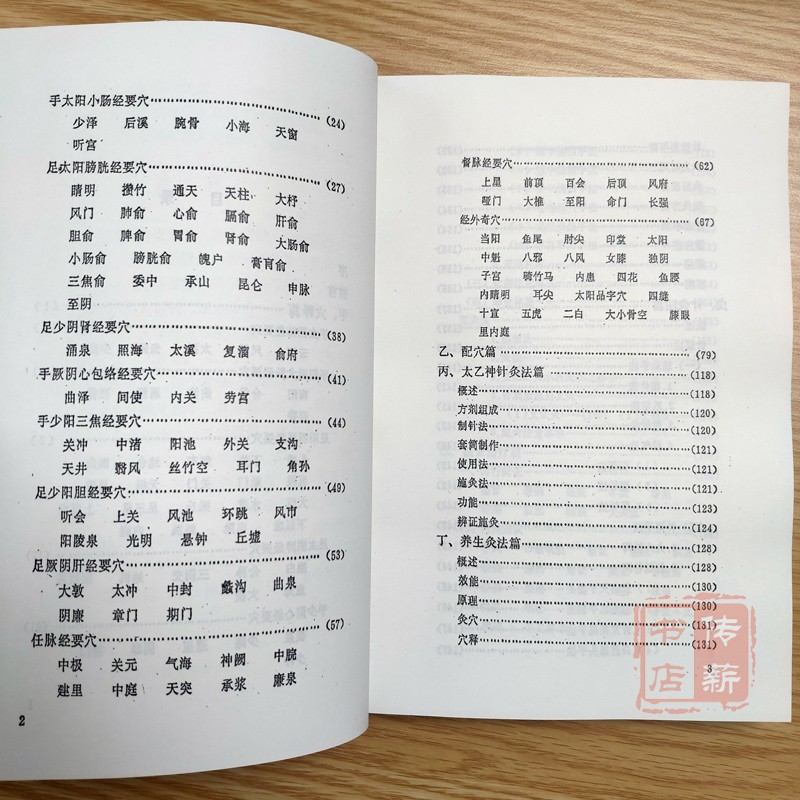 手太阳小肠经要穴……(24)
少泽 后溪 腕骨 小海 天窗
听宫
足太阳膀胱经要穴……(27)
睛明 攒竹 通天 天柱 大杼
风门 肺俞 心俞 膈俞 肝俞
胆俞 脾俞 胃俞 肾俞 大肠俞
小肠俞 膀胱俞 魄户 膏肓俞
三焦俞 委中 承山 昆仑 申脉
至阴
足少阴肾经要穴……(38)
涌泉 照海 太溪 复溜 俞府
手厥阴心包络经要穴……(41)
曲泽 间使 内关 劳宫
手少阳三焦经要穴……(44)
关冲 中渚 阳池 外关 支沟
天井 翳风 丝竹空 耳门 角孙
足少阳胆经要穴……(49)
听会 上关 风池 环跳 风市
阳陵泉 光明 悬钟 丘墟
足厥阴肝经要穴……(53)
大敦 太冲 中封 蠡沟 曲泉
阴廉 章门 期门
任脉经要穴……(57)
中极 关元 气海 神阙 中脘
建里 中庭 天突 承浆 廉泉
2
督脉经要穴……(62)
上星 前顶 百会 后顶 风府
哑门 大椎 至阳 命门 长强
经外奇穴……(67)
当阳 鱼尾 肘尖 印堂 太阳
中魁 八邪 八风 女膝 独阴
子宫 骑竹马 内患 四花 鱼腰
内睛明 耳尖 太阳品字穴 四缝
十宣 五虎 二白 大小骨空 膝眼
里内庭
乙、配穴篇……(79)
丙、太乙神针灸法篇……(118)
概述……(118)
方剂组成……(120)
制针法……(120)
套筒制作……(121)
使用法……(121)
施灸法……(121)
功能……(123)
辨证施灸……(124)
丁、养生灸法篇……(128)
概述……(128)
效能……(130)
原理……(130)
灸穴……(131)
穴释……(131)
3
传薪书店